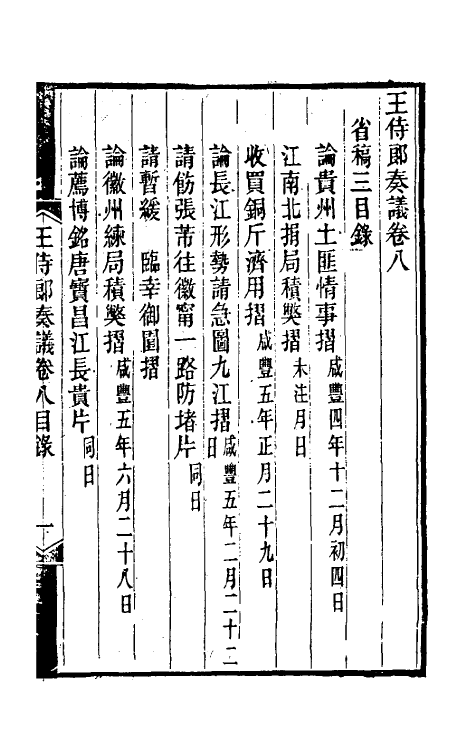 王侍郎奏議卷八
省稿三目錄
論貴州土匪情事摺咸豐四年十二月初四日
江南北捐局積獘摺未注月日
收買銅斤濟用摺咸豐五年正月二十九日
論長江形勢請急圖九江摺咸豐五年二月二十二日
請飭張芾往徽甯一路防堵片同日
請暫緩　臨幸御園摺
論徽州練局積獘摺咸豐五年六月二十八日
論薦博銘唐寶昌江長貴片同日
王侍郎奏議卷八目錄　一